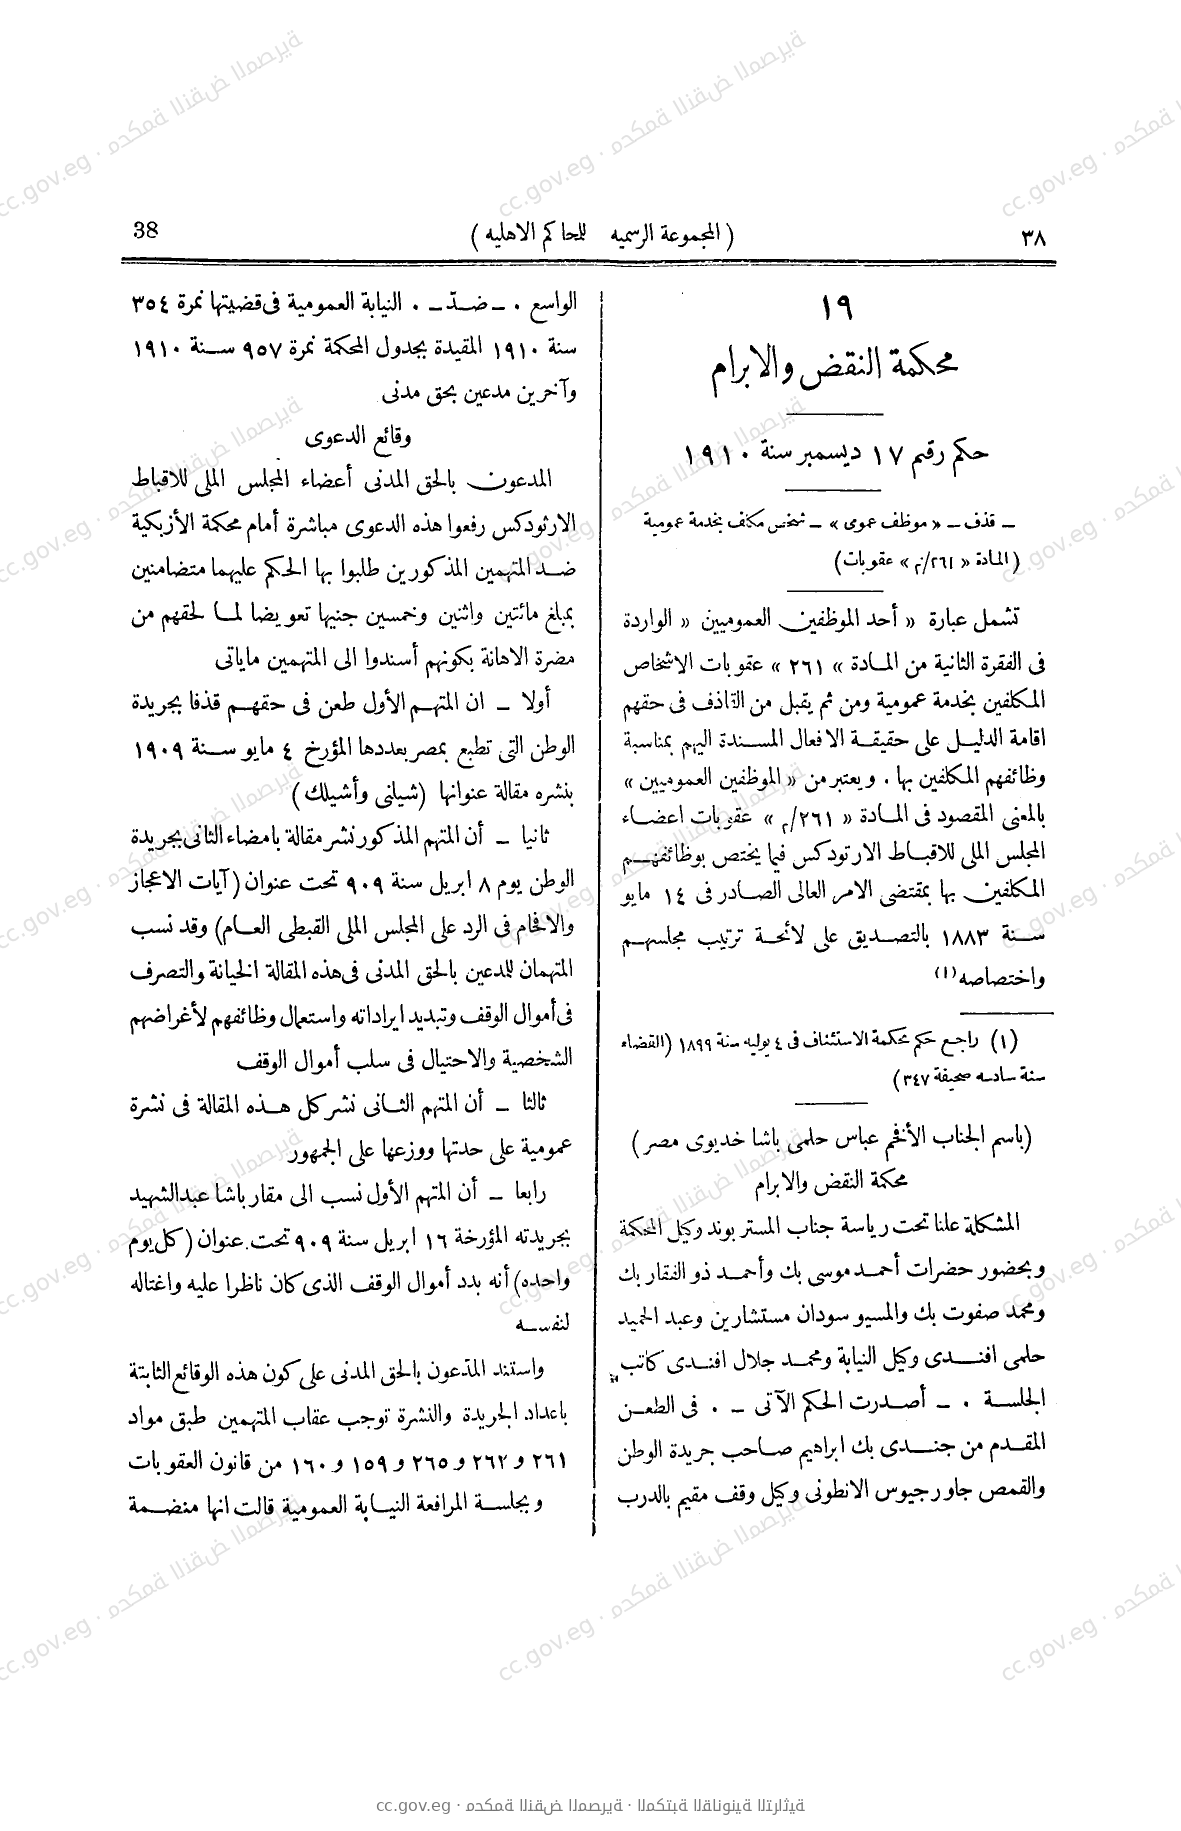 38
(المجموعة الرسميه للمحاكم الاهليه)
٣٨
١٩
محكمة النقض والابرام
حكم رقم ١٧ ديسمبر سنة ١٩١٠
ــ قذف ــ « موظف عمومى » ــ شخص مكلف بخدمة عمومية
(المادة « ٢٦١/م » عقوبات)
تشمل عبارة « أحد الموظفين العموميين « الواردة
فى الفقرة الثانية من المادة » ٢٦١ » عقوبات الاشخاص
المكلفين بخدمة عمومية ومن ثم يقبل من القاذف فى حقهم
اقامة الدليل على حقيقة الافعال المسندة اليهم بمناسبة
وظائفهم المكلفين بها . ويعتبر من « الموظفين العموميين »
بالمعنى المقصود فى المادة « ٢٦١/م » عقوبات اعضاء
المجلس الملى للاقباط الارتودكس فيما يختص بوظائفهم
المكلفين بها بمقتضى الامر العالى الصادر فى ١٤ مايو
سنة ١٨٨٣ بالتصديق على لائحة ترتيب مجلسهم
واختصاصه (١)
(١) راجع حكم محكمة الاستئناف فى ٤ يوليه سنة ١٨٩٩ (القضاء
سنة سادسه صحيفة ٣٤٧)
(باسم الجناب الأفخم عباس حلمى باشا خديوى مصر)
محكمة النقض والابرام
المشكلة علنا تحت رياسة جناب المستر بوند وكيل المحكمة
وبحضور حضرات أحمد موسى بك وأحمد ذو الفقار بك
ومحمد صفوت بك والمسيو سودان مستشارين وعبد الحميد
حلمى افندى وكيل النيابة ومحمد جلال افندى كاتب
الجلسة . ــ أصدرت الحكم الآتى ــ . فى الطعن
المقدم من جندى بك ابراهيم صاحب جريدة الوطن
والقمص جاورجيوس الانطونى وكيل وقف مقيم بالدرب
الواسع . ــ ضدّ ــ . النيابة العمومية فى قضيتها نمرة ٣٥٤
سنة ١٩١٠ المقيدة بجدول المحكمة نمرة ٩٥٧ سنة ١٩١٠
وآخرين مدعين بحق مدنى
وقائع الدعوى
المدعون بالحق المدنى أعضاء المجلس الملى للاقباط
الارثودكس رفعوا هذه الدعوى مباشرة أمام محكمة الأزبكية
ضد المتهمين المذكورين طلبوا بها الحكم عليهما متضامنين
بمبلغ مائتين واثنين وخمسين جنيها تعويضا لما لحقهم من
مضرة الاهانة بكونهم أسندوا الى المتهمين ماياتى
أولا ــ ان المتهم الأول طعن فى حقهم قذفا بجريدة
الوطن التى تطبع بمصر بعددها المؤرخ ٤ مايو سنة ١٩٠٩
بنشره مقالة عنوانها (شيلنى وأشيلك)
ثانيا ــ أن المتهم المذكور نشر مقالة بامضاء الثانى بجريدة
الوطن يوم ٨ ابريل سنة ٩٠٩ تحت عنوان (آيات الاعجاز
والافحام فى الرد على المجلس الملى القبطى العام) وقد نسب
المتهمان للمدعين بالحق المدنى فى هذه المقالة الخيانة والتصرف
فى أموال الوقف وتبديد ايراداته واستعمال وظائفهم لأغراضهم
الشخصية والاحتيال فى سلب أموال الوقف
ثالثا ــ أن المتهم الثانى نشر كل هذه المقالة فى نشرة
عمومية على حدتها ووزعها على الجمهور
رابعا ــ أن المتهم الأول نسب الى مقار باشا عبد الشهيد
بجريدته المؤرخة ١٦ ابريل سنة ٩٠٩ تحت عنوان (كل يوم
واحده) أنه بدد أموال الوقف الذى كان ناظرا عليه واغتاله
لنفسه
واستند المدّعون بالحق المدنى على كون هذه الوقائع الثابتة
باعداد الجريدة والنشرة توجب عقاب المتهمين طبق مواد
٢٦١ و ٢٦٢ و ٢٦٥ و ١٥٩ و ١٦٠ من قانون العقوبات
وبجلسة المرافعة النيابة العمومية قالت انها منضمة
cc.gov.eg · محكمة النقض المصرية · المكتبة القانونية التراثية